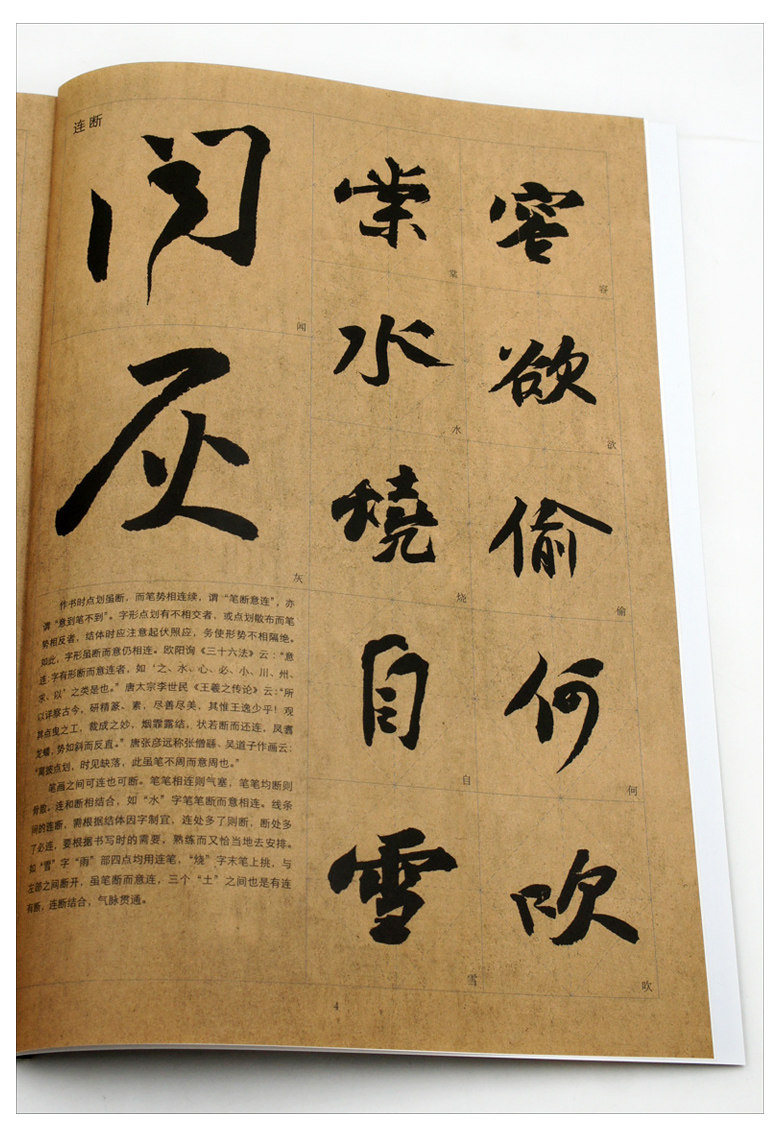 连断
闻
闻
灰
灰
作书时点划虽断，而笔势相连续，谓“笔断意连”，亦
谓“意到笔不到”。字形点划有不相交者，或点划散布而笔
势相反者，结体时应注意起伏照应，务使形势不相隔绝。
如此，字形虽断而意仍相连。欧阳询《三十六法》云：“意
连：字有形断而意连者，如‘之、水、心、必、小、川、州、
求、以’之类是也。”唐太宗李世民《王羲之传论》云：“所
以详察古今，研精篆、素，尽善尽美，其惟王逸少乎！观
其点曳之工，裁成之妙，烟霏露结，状若断而还连，凤翥
龙蟠，势如斜而反直。”唐张彦远称张僧繇、吴道子作画云：
“离披点划，时见缺落，此虽笔不周而意周也。”
笔画之间可连也可断。笔笔相连则气塞，笔笔均断则
骨散。连和断相结合，如“水”字笔笔断而意相连。线条
间的连断，需根据结体因字制宜，连处多了则断，断处多
了必连，要根据书写时的需要，熟练而又恰当地去安排。
如“雪”字“雨”部四点均用连笔，“烧”字末笔上挑，与
左部之间断开，虽笔断而意连，三个“土”之间也是有连
有断，连断结合，气脉贯通。
棠
棠
水
水
燒
烧
自
自
雪
雪
容
容
欲
欲
偷
偷
何
何
吹
吹
4